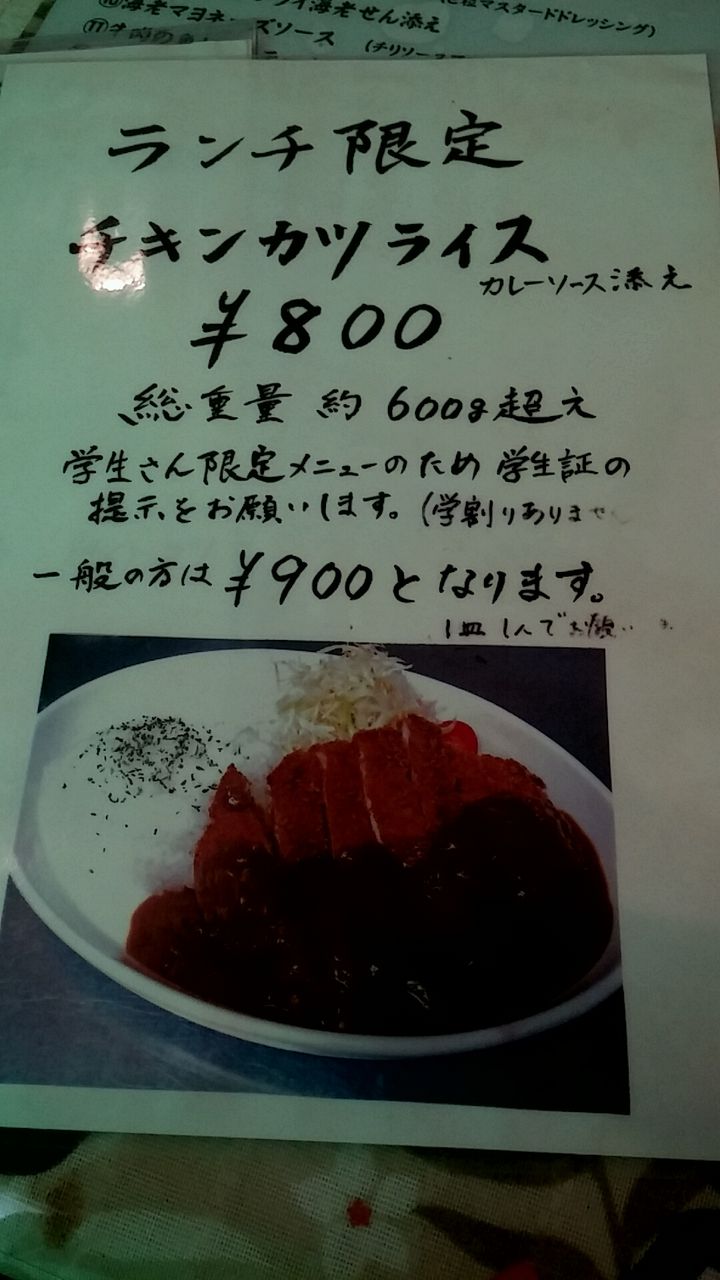 海老マヨネーズソース
海老せん添え
粒マスタードドレッシング)
(チリソース
ランチ限定
チキンカツライス
カレーソース添え
¥800
総重量 約 600g超え
学生さん限定メニューのため 学生証の
提示をお願いします。(学割りありませ
一般の方は ¥900となります。
1皿 1人でお願い